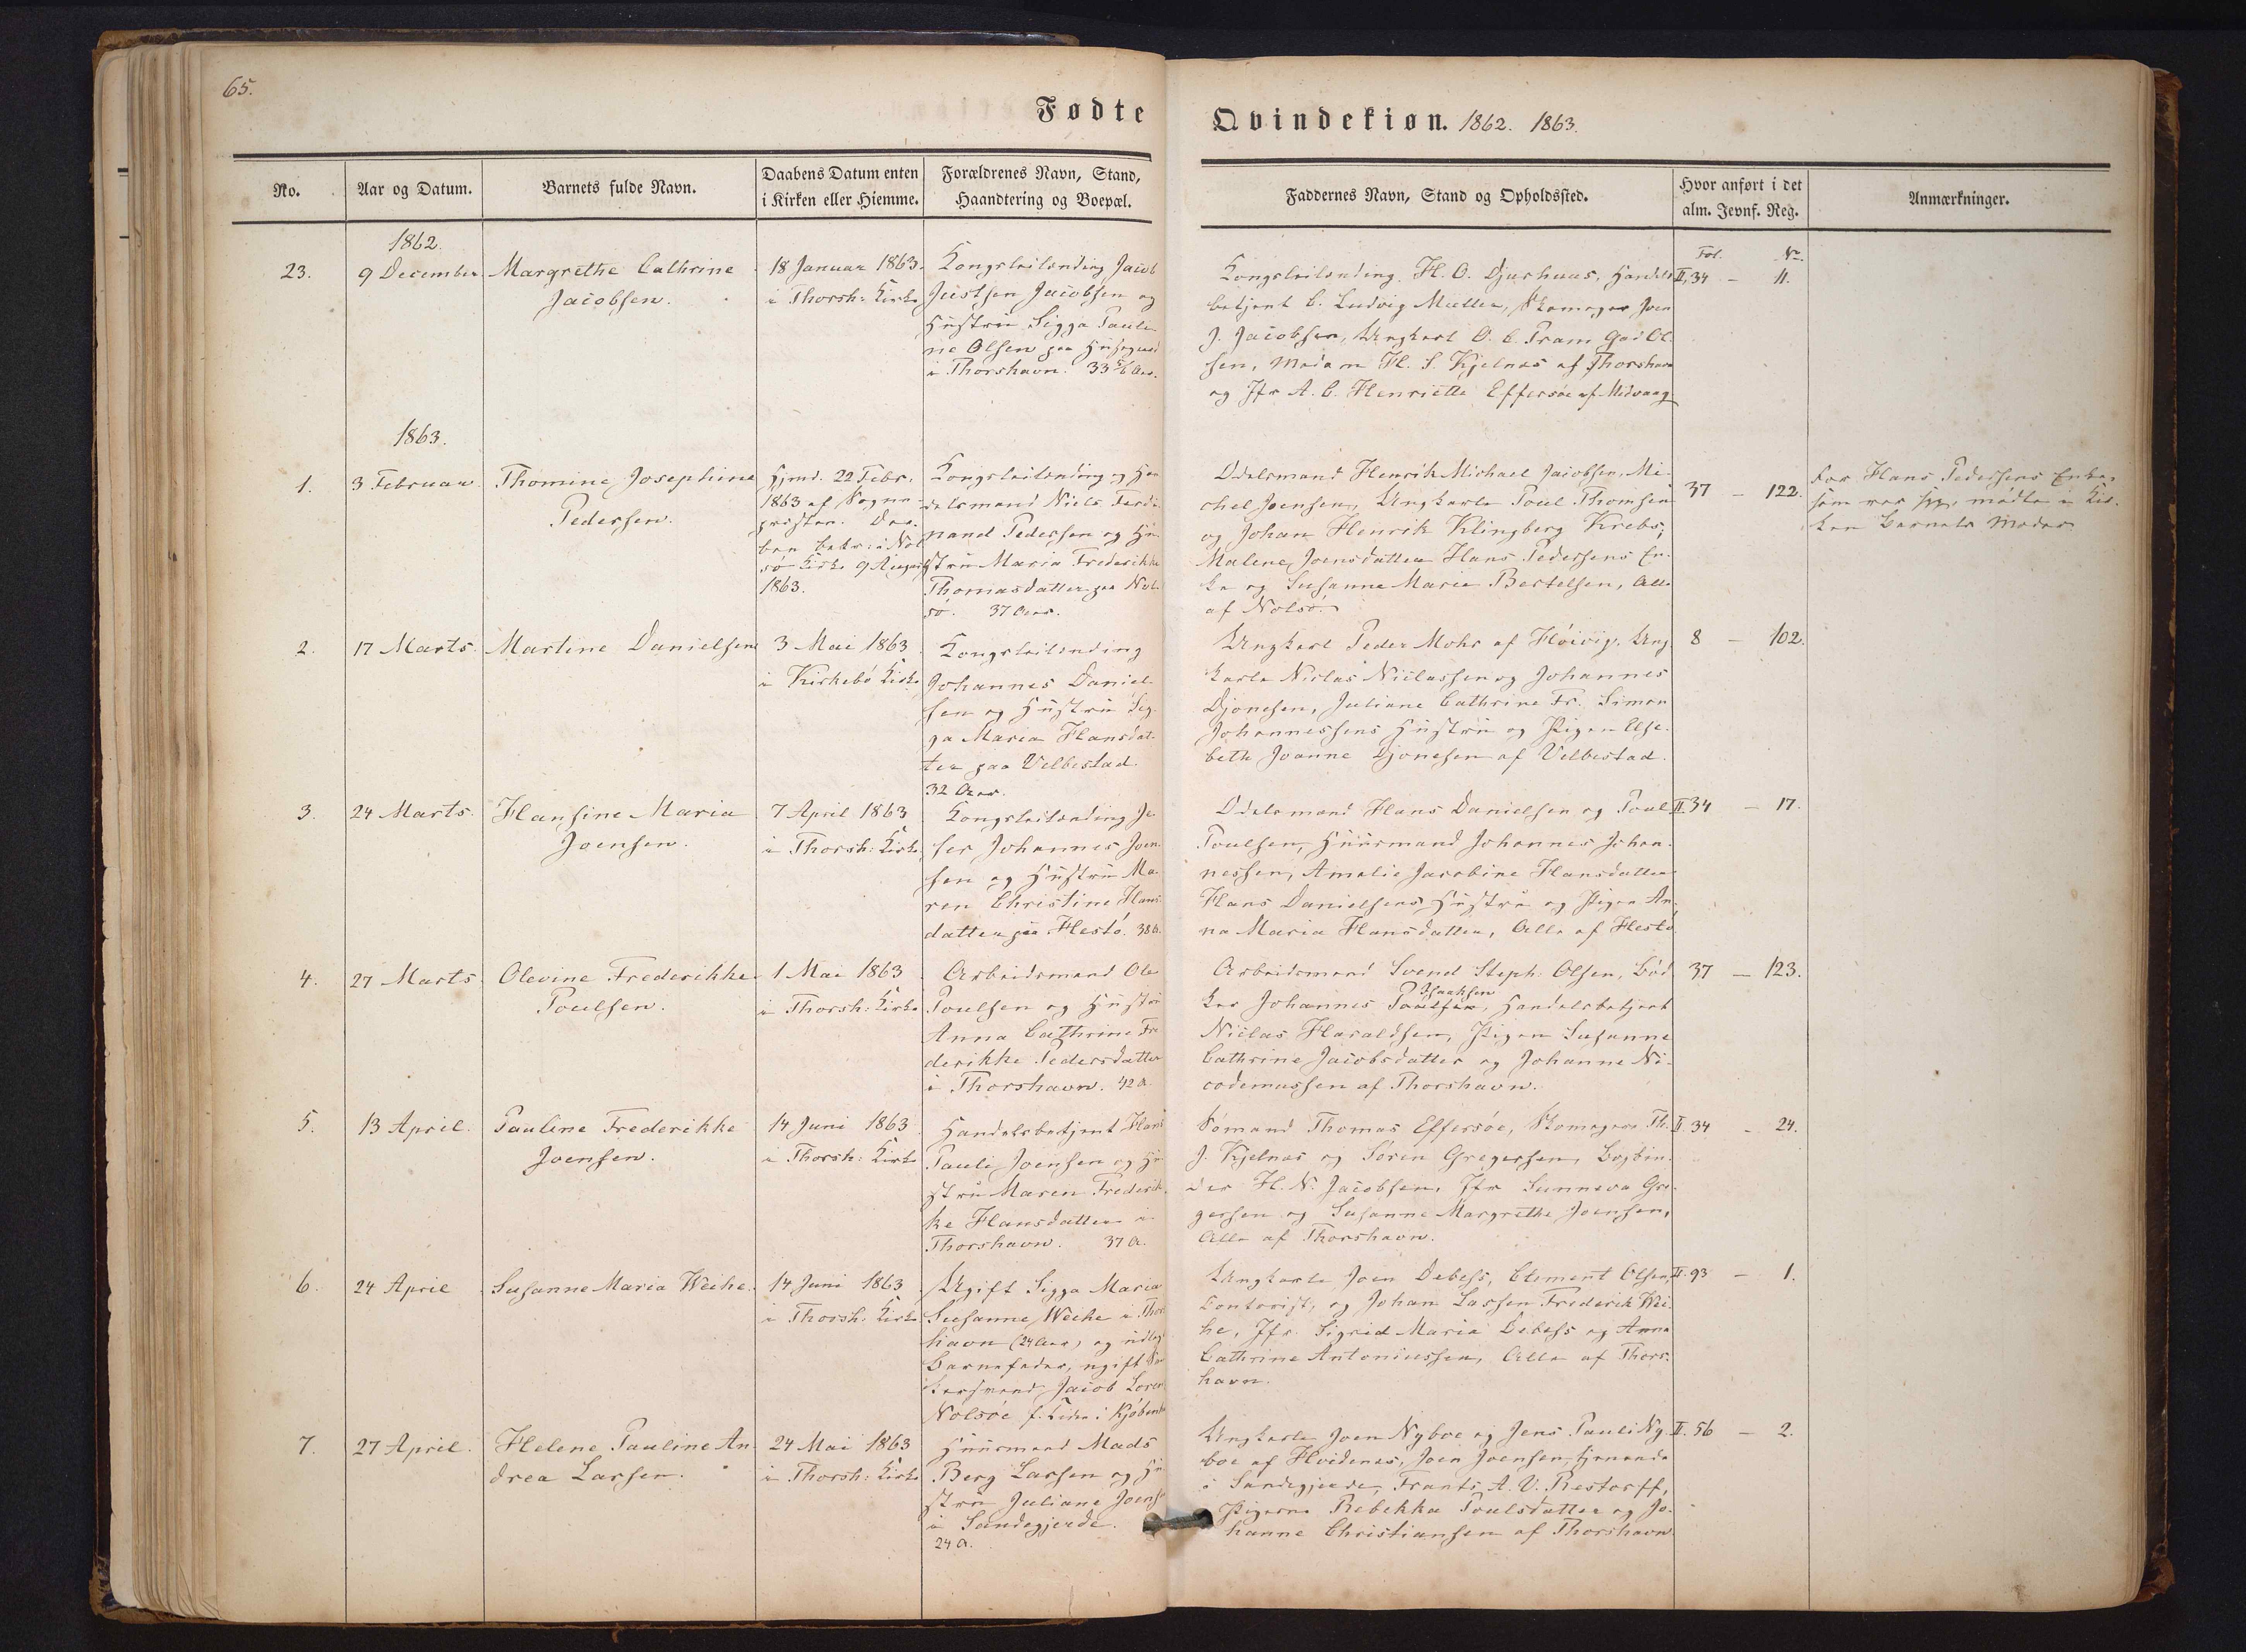 65.
Fødte
Qvindekiøn. 1862. 1863.
No.
Aar og Datum.
Barnets fulde Navn.
Daabens Datum enten
i Kirken eller Hiemme.
Forældrenes Navn, Stand,
Haandtering og Boepæl.
Faddernes Navn, Stand og Opholdssted.
Hvor anført i det
alm. Jevnf. Reg.
Anmærkninger.
1862.
23.
9 December
Margrethe Cathrine
Jacobsen.
18 Januar 1863.
i Thorsh: Kirke
Kongsleilending Jacob
Justsen Jacobsen og
Hustru Sigga Pauli-
ne Olsen paa Husegard
i Thorshavn. 33 5/6 Aar.
Kongsleilending H. O. Djurhuus, Handels
betjent C. Ludvig Müller, Skomager Joen
J. Jacobsen, Ungkarl O. C. Pram Gad Ol-
sen, Madam H. S. Kjelnæs af Thorshavn
og Jfr A. C. Henriette Effersøe af Midvaag
Fol. No
II, 34 - 11.
1863.
1.
3 Februar
Thomine Josephine
Pedersen.
Hjmd. 22 Febr.
1863 af Sogne-
præsten. Daa-
ben bekr: i Nol
sø Kirke 9 August
1863.
Kongsleilending og Han
delsmand Niels Ferdi-
nand Pedersen og Hu-
stru Maria Frederikke
Thomasdatter paa Nol-
sø. 37 Aar.
Odelsmand Henrik Michael Jacobsen, Mi-
chel Joensen, Ungkarle Poul Thomsen
og Johan Henrik Klingberg Krebs,
Malene Joensdatter Hans Pedersens En-
ke og Susanne Marie Bertelsen, Alle
af Nolsø.
37 - 122.
For Hans Pedersens Enke,
som var syg, mødte i Kir-
ken Barnets Moder
2.
17 Marts.
Martine Danielsen
3 Mai 1863
i Kirkebø Kirke
Kongsleilending
Johannes Daniel-
sen og Hustru Sig-
ga Maria Hansdat-
ter paa Velbestad.
32 Aar.
Ungkarl Peder Mohr af Høivig, Ung-
karle Niclas Niclassen og Johannes
Djonesen, Juliane Cathrine Fr. Simon
Johannessens Hustru og Pigen Else-
beth Joanne Djonesen af Velbestad.
8 - 102.
3.
24 Marts.
Hansine Maria
Joensen.
7 April 1863
i Thorsh: Kirke
Kongsleilending Je-
ser Johannes Joen-
sen og Hustru Ma-
ren Christine Hans-
datter paa Hestø. 38 A.
Odelsmand Hans Danielsen og Poul
Poulsen, Huusmand Johannes Johan-
nessen, Amalie Jacobine Hansdatter
Hans Danielsens Hustru og Pigen An-
na Maria Hansdatter, Alle af Hestø
II 34 - 17.
4.
27 Marts
Olevine Frederikke
Poulsen.
1 Mai 1863
i Thorsh: Kirke
Arbeidsmand Ole
Poulsen og Hustru
Anna Cathrine Fre
derikke Pedersdatter
i Thorshavn. 42 A.
Arbeidsmand Svend Steph: Olsen, Bød-
Isaaksen
ker Johannes Poulsen, Handelsbetjent
Niclas Haraldsen, Pigen Susanne
Cathrine Jacobsdatter og Johanne Ni-
codemussen af Thorshavn.
37 - 123.
5.
13 April.
Pauline Frederikke
Joensen.
14 Juni 1863
i Thorsh: Kirke
Handelsbetjent Hans
Pauli Joensen og Hu
stru Maren Frederik-
ke Hansdatter i
Thorshavn. 37 A.
Sømand Thomas Effersøe, Skomager Th.
J. Kjelnæs og Søren Gregersen, Bogbin-
der H. N. Jacobsen, Jfr Sunneva Gre-
gersen og Susanne Margrethe Joensen,
Alle af Thorshavn.
II 34 - 24.
6.
24 April
Susanne Maria Weihe.
14 Juni 1863
i Thorsh: Kirke
Ugift Sigga Maria
Susanne Weihe i Thors
havn (24 Aar) og udlagt
Barnefader, ugift
Jacob Loren
Nolsøe f. Tiden i Kjøbenh
Ungkarle Joen Debess, Clement Olsen,
Contorist, og Johan Lassen Frederik Wei-
he, Jfr. Sigrid Maria Debess og Anna
Cathrine Antoniussen, Alle af Thors-
havn.
II. 93 - 1.
7.
27 April.
Helene Pauline An-
drea Larsen.
24 Mai 1863
i Thorsh: Kirke
Huusmand Mads
Berg Larsen og Hu
stru Juliane Joense
i Sandegjerde.
24 A.
Ungkarle Joen Nyboe og Jens Pauli Ny-
boe af Hvidenæs, Joen Joensen tjenende
i Sandegjerde, Frants A. V. Restorff,
Pigerne Rebekka Poulsdatter og Jo-
hanne Christiansen af Thorshavn.
II. 56 - 2.